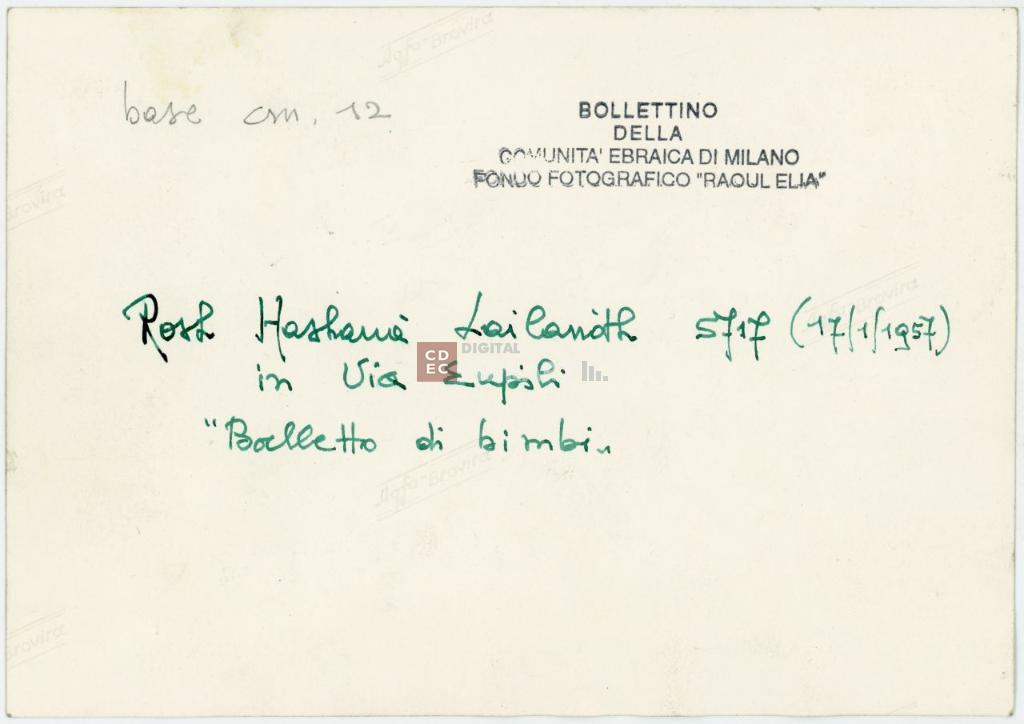 Agfa-Brovira
base cm. 12
BOLLETTINO
DELLA
COMUNITA' EBRAICA DI MILANO
FONDO FOTOGRAFICO "RAOUL ELIA"
Brovira
Agfa-Brovira
Rosh Hashanà Lailanòth 5717 (17/1/1957)
CDEC DIGITAL
in Via Eupili
"Balletto di bimbi"
Agfa-Brovira
Brovira